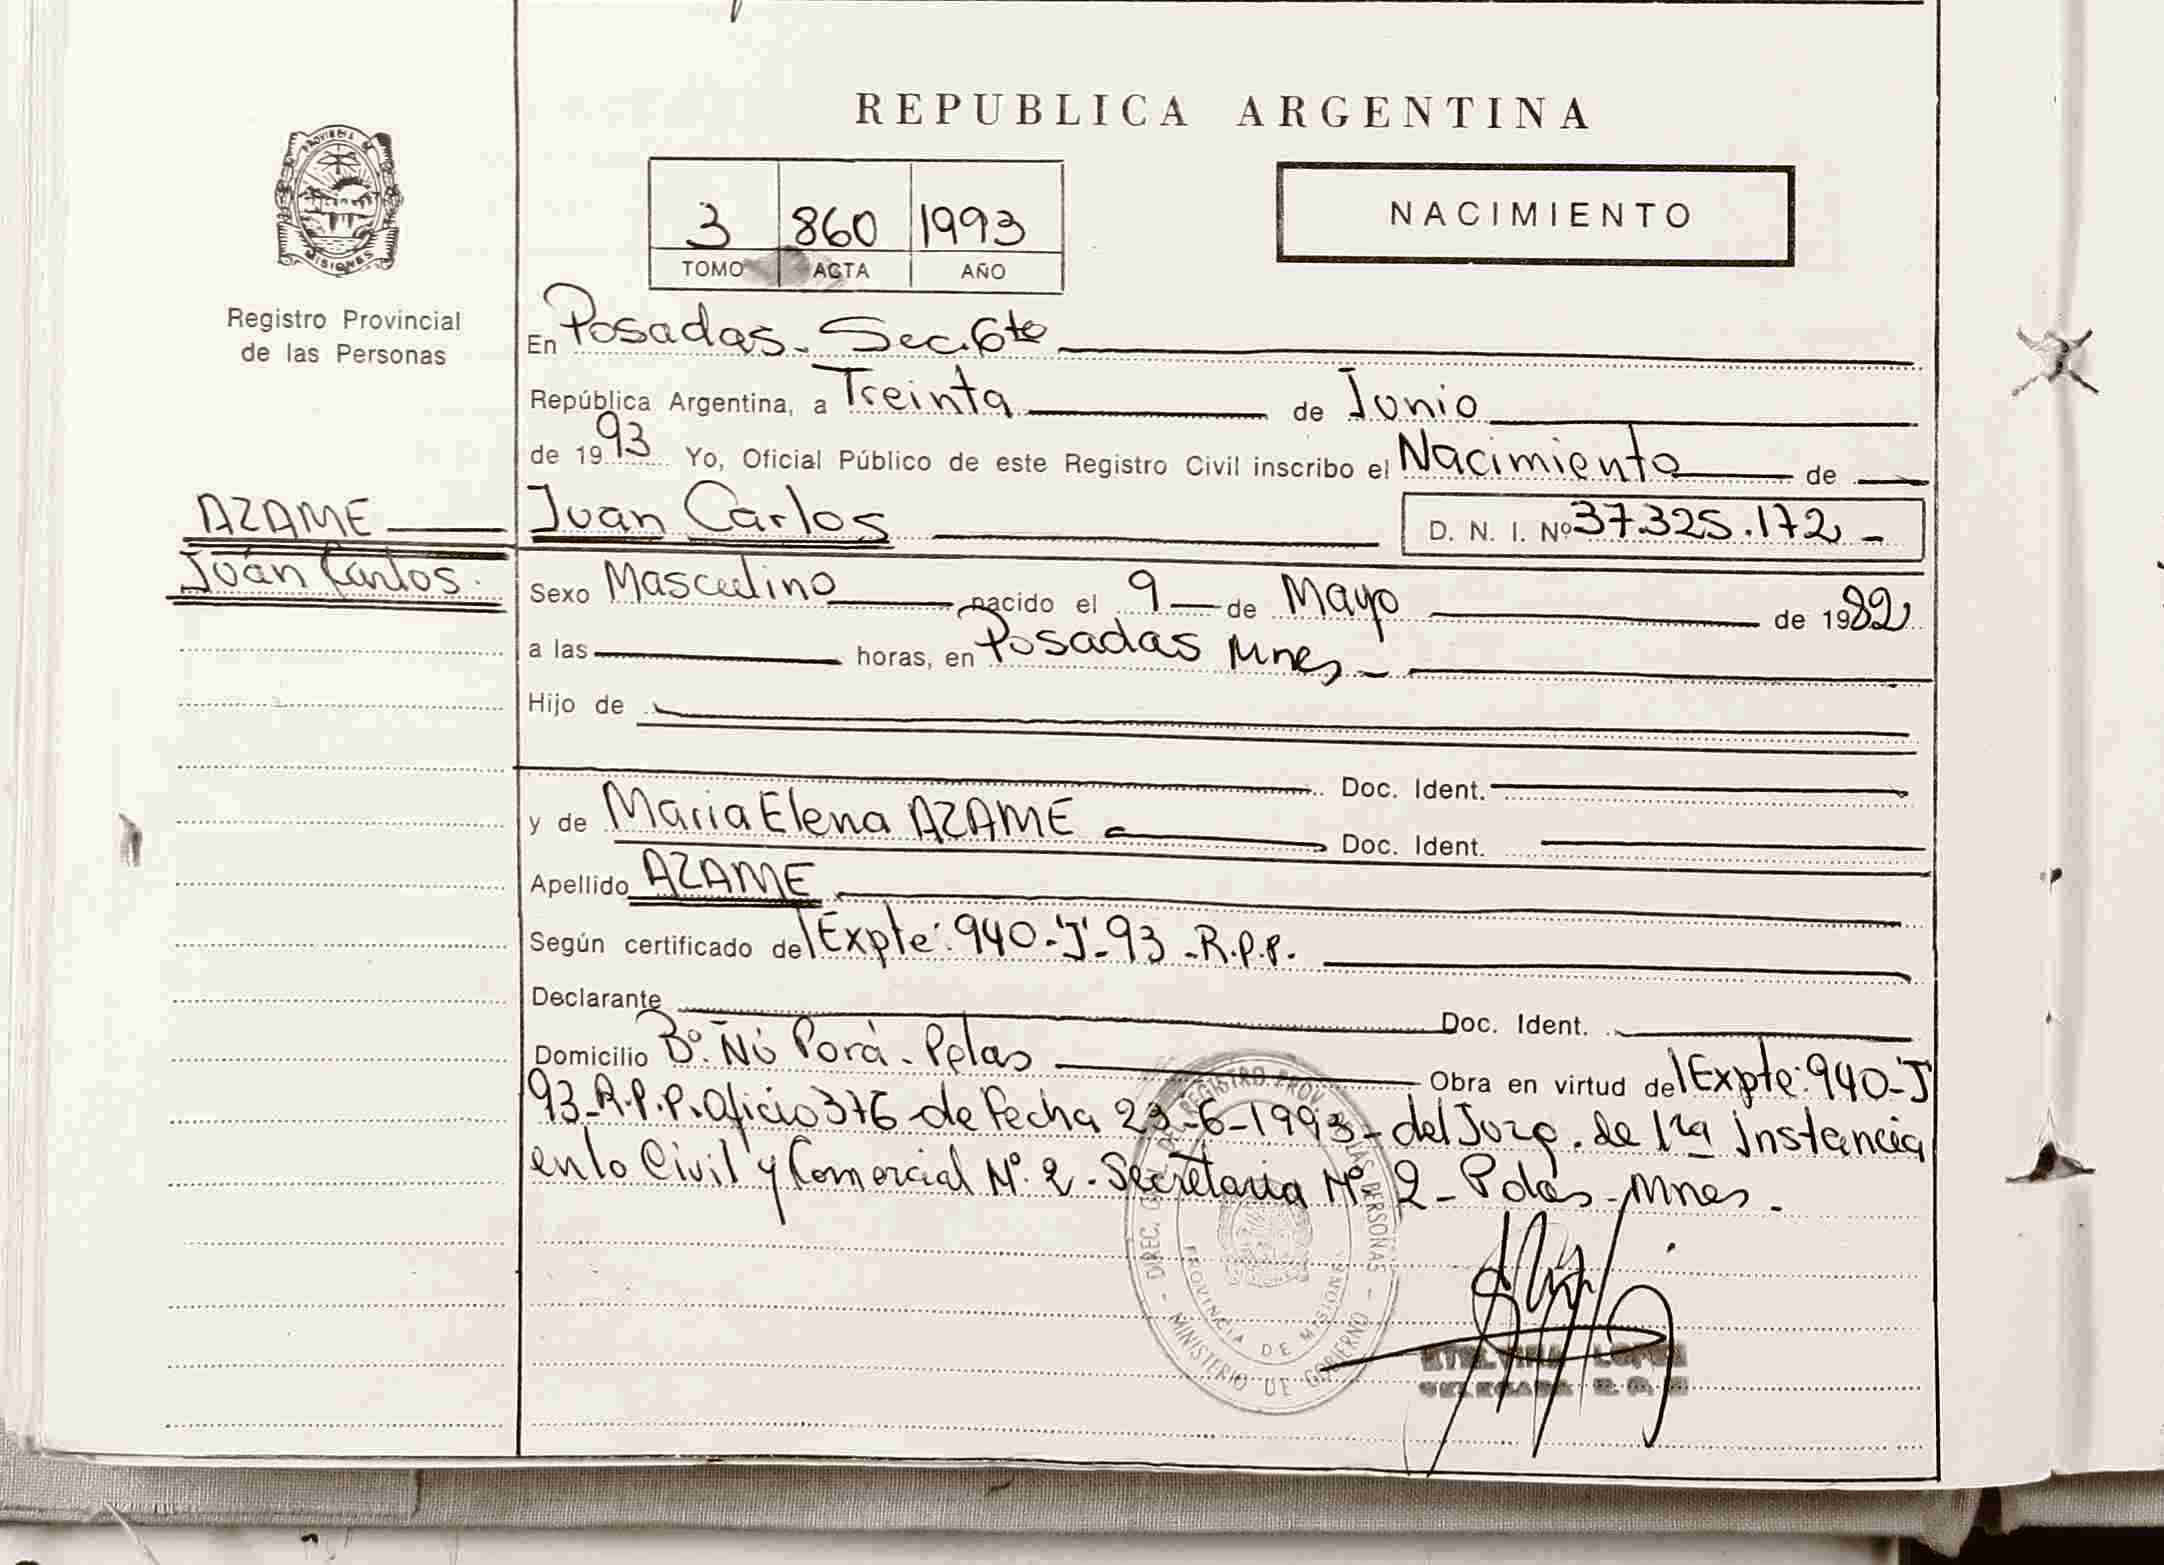 REPUBLICA ARGENTINA
PROVINCIA DE MISIONES
3 860 1993
TOMO ACTA AÑO
NACIMIENTO
Registro Provincial
de las Personas
En Posadas. Sec. 6ta
República Argentina, a Treinta de Junio
de 1993 Yo, Oficial Público de este Registro Civil inscribo el Nacimiento de
AZAME
Juan Carlos D. N. I. Nº 37.325.172 -
Juan Carlos.
Sexo Masculino nacido el 9 de Mayo de 1982
a las horas, en Posadas Mnes -
Hijo de
Doc. Ident.
y de Maria Elena AZAME Doc. Ident.
Apellido AZAME
Según certificado del Expte: 940-"J"-93-R.P.P.
Declarante Doc. Ident.
Domicilio Bº. Ñú Porá - Pdas Obra en virtud del Expte: 940-J
93-R.P.P. Oficio 376 de Fecha 23-6-1993- del Juzg. de 1ra Instancia
en lo Civil y Comercial Nº. 2 - Secretaria Nº 2 - Pdas - Mnes -
DIREC. GRAL. DEL REGISTRO PROV. DE LAS PERSONAS
PROVINCIA DE MISIONES
- MINISTERIO DE GOBIERNO -